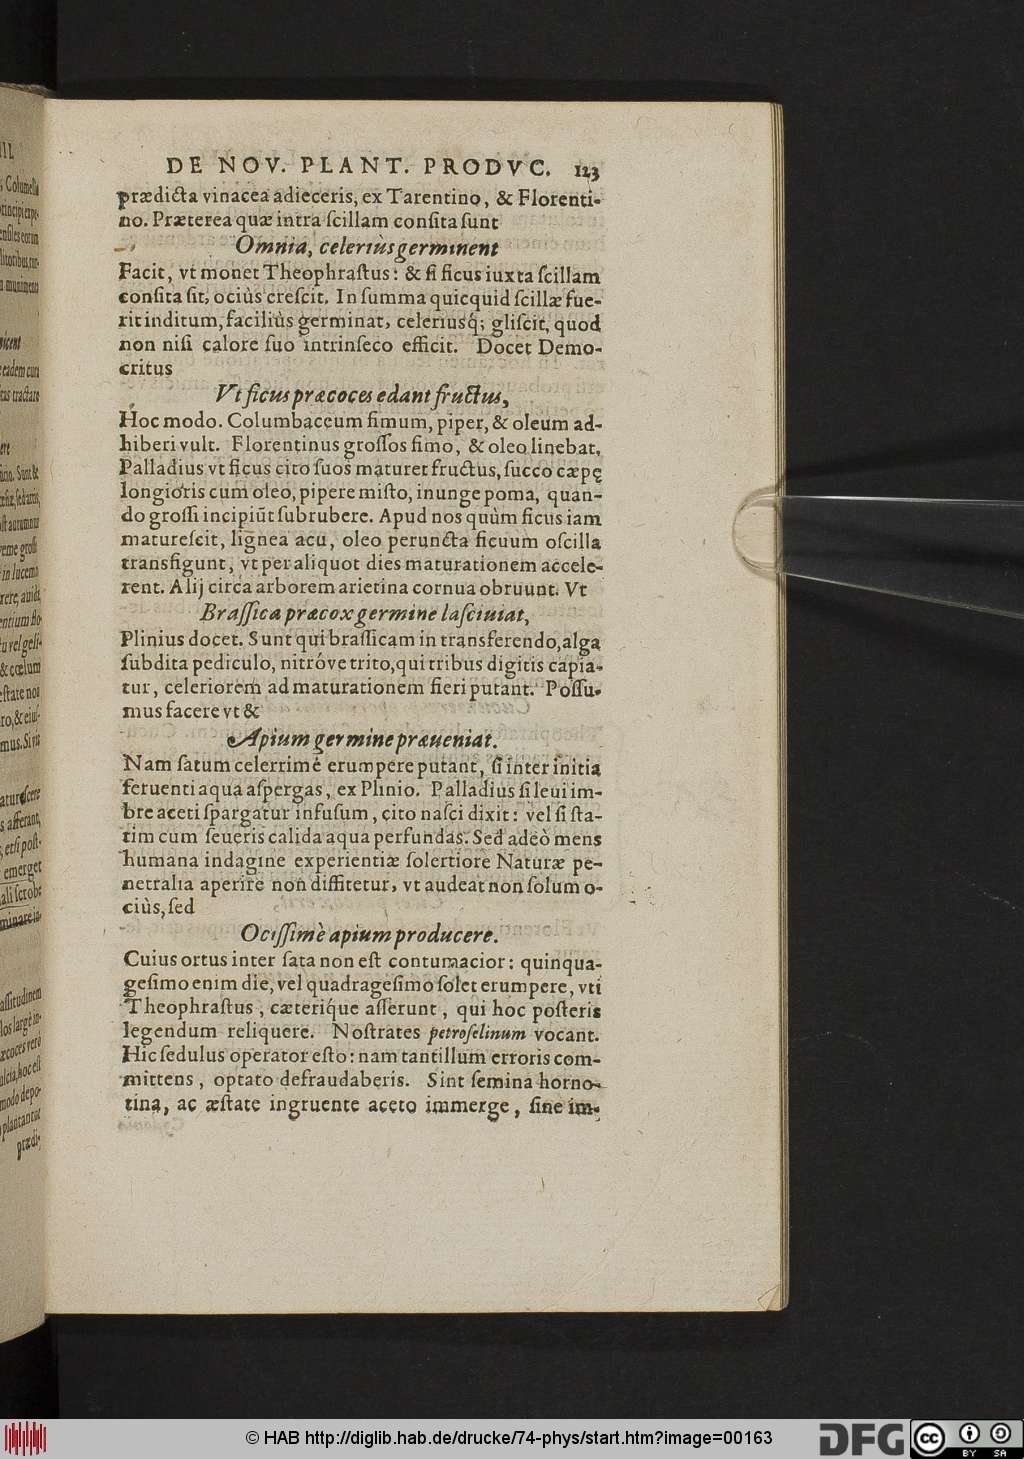 DE NOV. PLANT. PRODVC. 123
prædicta vinacea adieceris, ex Tarentino, & Florenti-
no. Præterea quæ intra ſcillam conſita ſunt
Omnia, celeriùs germinent
Facit, vt monet Theophraſtus: & ſi ficus iuxta ſcillam
conſita ſit, ociùs creſcit. In ſumma quicquid ſcillæ fue-
rit inditum, faciliùs germinat, celeriusq́; gliſcit, quod
non niſi calore ſuo intrinſeco efficit. Docet Demo-
critus
Vt ficus præcoces edant fructus,
Hoc modo. Columbaceum fimum, piper, & oleum ad-
hiberi vult. Florentinus groſſos fimo, & oleo linebat,
Palladius vt ficus cito ſuos maturet fructus, ſucco cæpę
longioris cum oleo, pipere miſto, inunge poma, quan-
do groſſi incipiũt ſubrubere. Apud nos quùm ficus iam
matureſcit, lignea acu, oleo peruncta ficuum oſcilla
transfigunt, vt per aliquot dies maturationem accele-
rent. Alij circa arborem arietina cornua obruunt. Vt
Braſſica præcox germine laſciuiat,
Plinius docet. Sunt qui braſſicam in transferendo, alga
ſubdita pediculo, nitróve trito, qui tribus digitis capia-
tur, celeriorem ad maturationem fieri putant. Poſſu-
mus facere vt &
Apium germine præueniat.
Nam ſatum celerrimé erumpere putant, ſi inter initia
feruenti aqua aſpergas, ex Plinio. Palladius ſi leui im-
bre aceti ſpargatur infuſum, cito naſci dixit: vel ſi ſta-
tim cum ſeueris calida aqua perfundas. Sed adeò mens
humana indagine experientiæ ſolertiore Naturæ pe-
netralia aperire non diffitetur, vt audeat non ſolum o-
ciùs, ſed
Ociſſimè apium producere.
Cuius ortus inter ſata non eſt contumacior: quinqua-
geſimo enim die, vel quadrageſimo ſolet erumpere, vti
Theophraſtus, cæteriq́ue aſſerunt, qui hoc poſteris
legendum reliquere. Noſtrates petroſelinum vocant.
Hic ſedulus operator eſto: nam tantillum erroris com-
mittens, optato defraudaberis. Sint ſemina horno-
tina, ac æſtate ingruente aceto immerge, ſine im-
© HAB http://diglib.hab.de/drucke/74-phys/start.htm?image=00163
DFG
cc BY SA